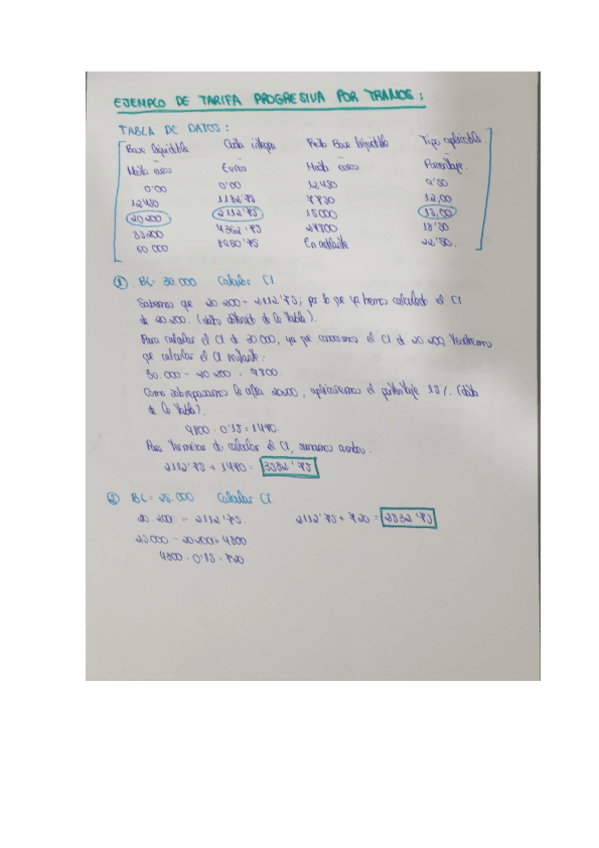 EJEMPLO DE TARIFA PROGRESIVA POR TRAMOS:
TABLA DE DATOS:
Base liquidable Cuota íntegra Resto Base liquidable Tipo aplicable
Hasta euros Euros Hasta euros Porcentaje
0'00 0'00 12.450 9'50
12.450 1182'75 7750 12,00
20.200 2112'75 15.000 15,00
35.200 4362'75 24800 18'50
60.000 8950'75 En adelante 22'50.
① BL= 30.000 Calcular CI.
Sabemos que 20.200 = 2112'75; por lo que ya hemos calculado el CI
de 20.200. (dato de la tabla).
Para calcular el CI de 30.000, ya que conocemos el CI de 20.200, tendremos
que calcular el CI restante:
30.000 - 20.200 = 9800.
Como sobrepasamos la cifra 20200, aplicaremos el porcentaje 15%. (dato
de la tabla).
9800 · 0'15 = 1470.
Para terminar de calcular el CI, sumamos ambos.
2112'75 + 1470 = 3582'75
② BL= 25.000 Calcular CI.
20.200 = 2112'75. 2112'75 + 720 = 2832'75
25.000 - 20.200 = 4800
4800 · 0'15 = 720